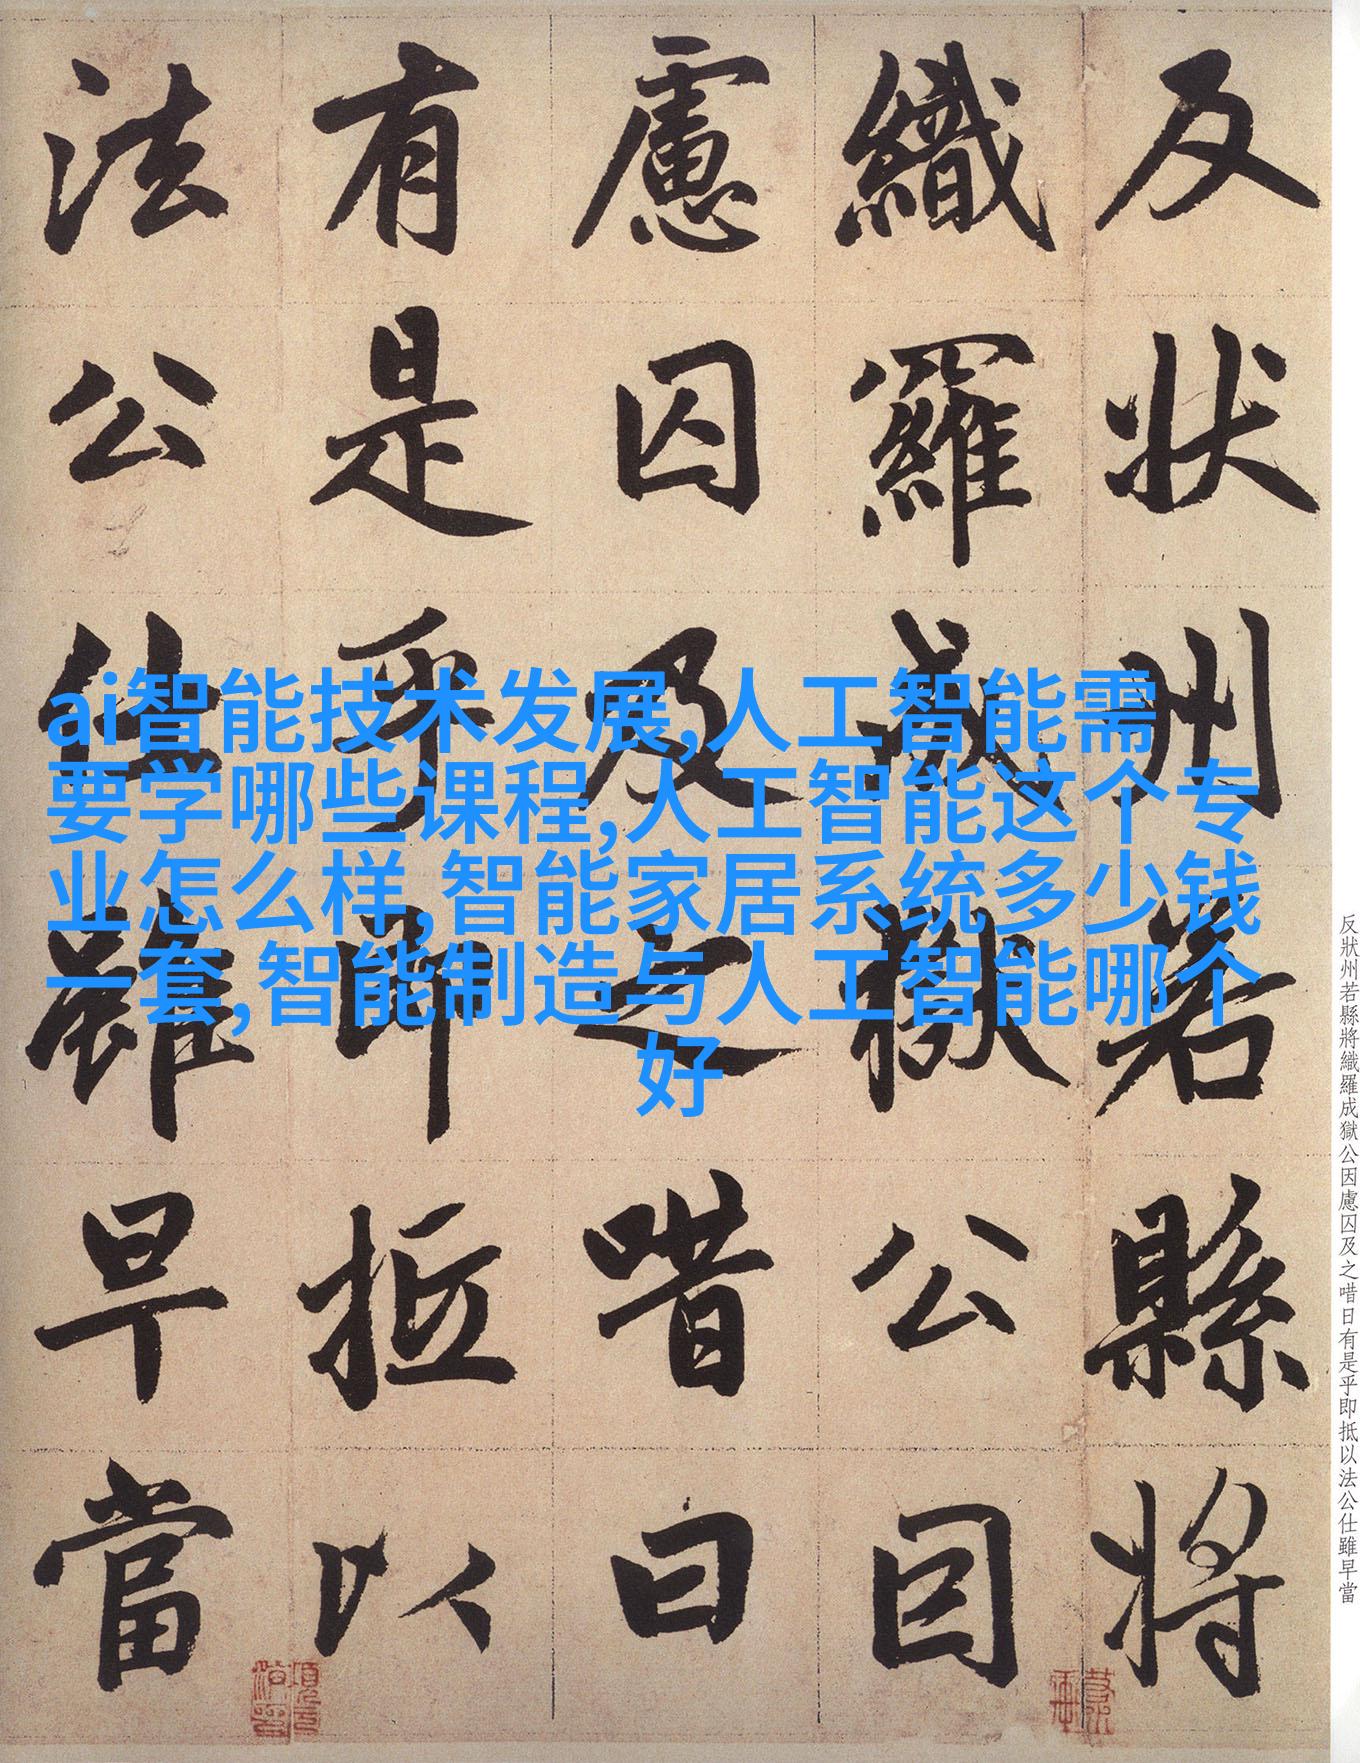 反狀州若縣將
織羅成獄公因
慮囚及之唶曰
有是乎即抵以
法公仕雖早當
ai智能技术发展,人工智能需
要学哪些课程,人工智能这个专
业怎么样,智能家居系统多少钱
一套,智能制造与人工智能哪个
好
反狀州若縣將織羅成獄公因慮囚及之唶日有是乎即抵以法公仕雖早當